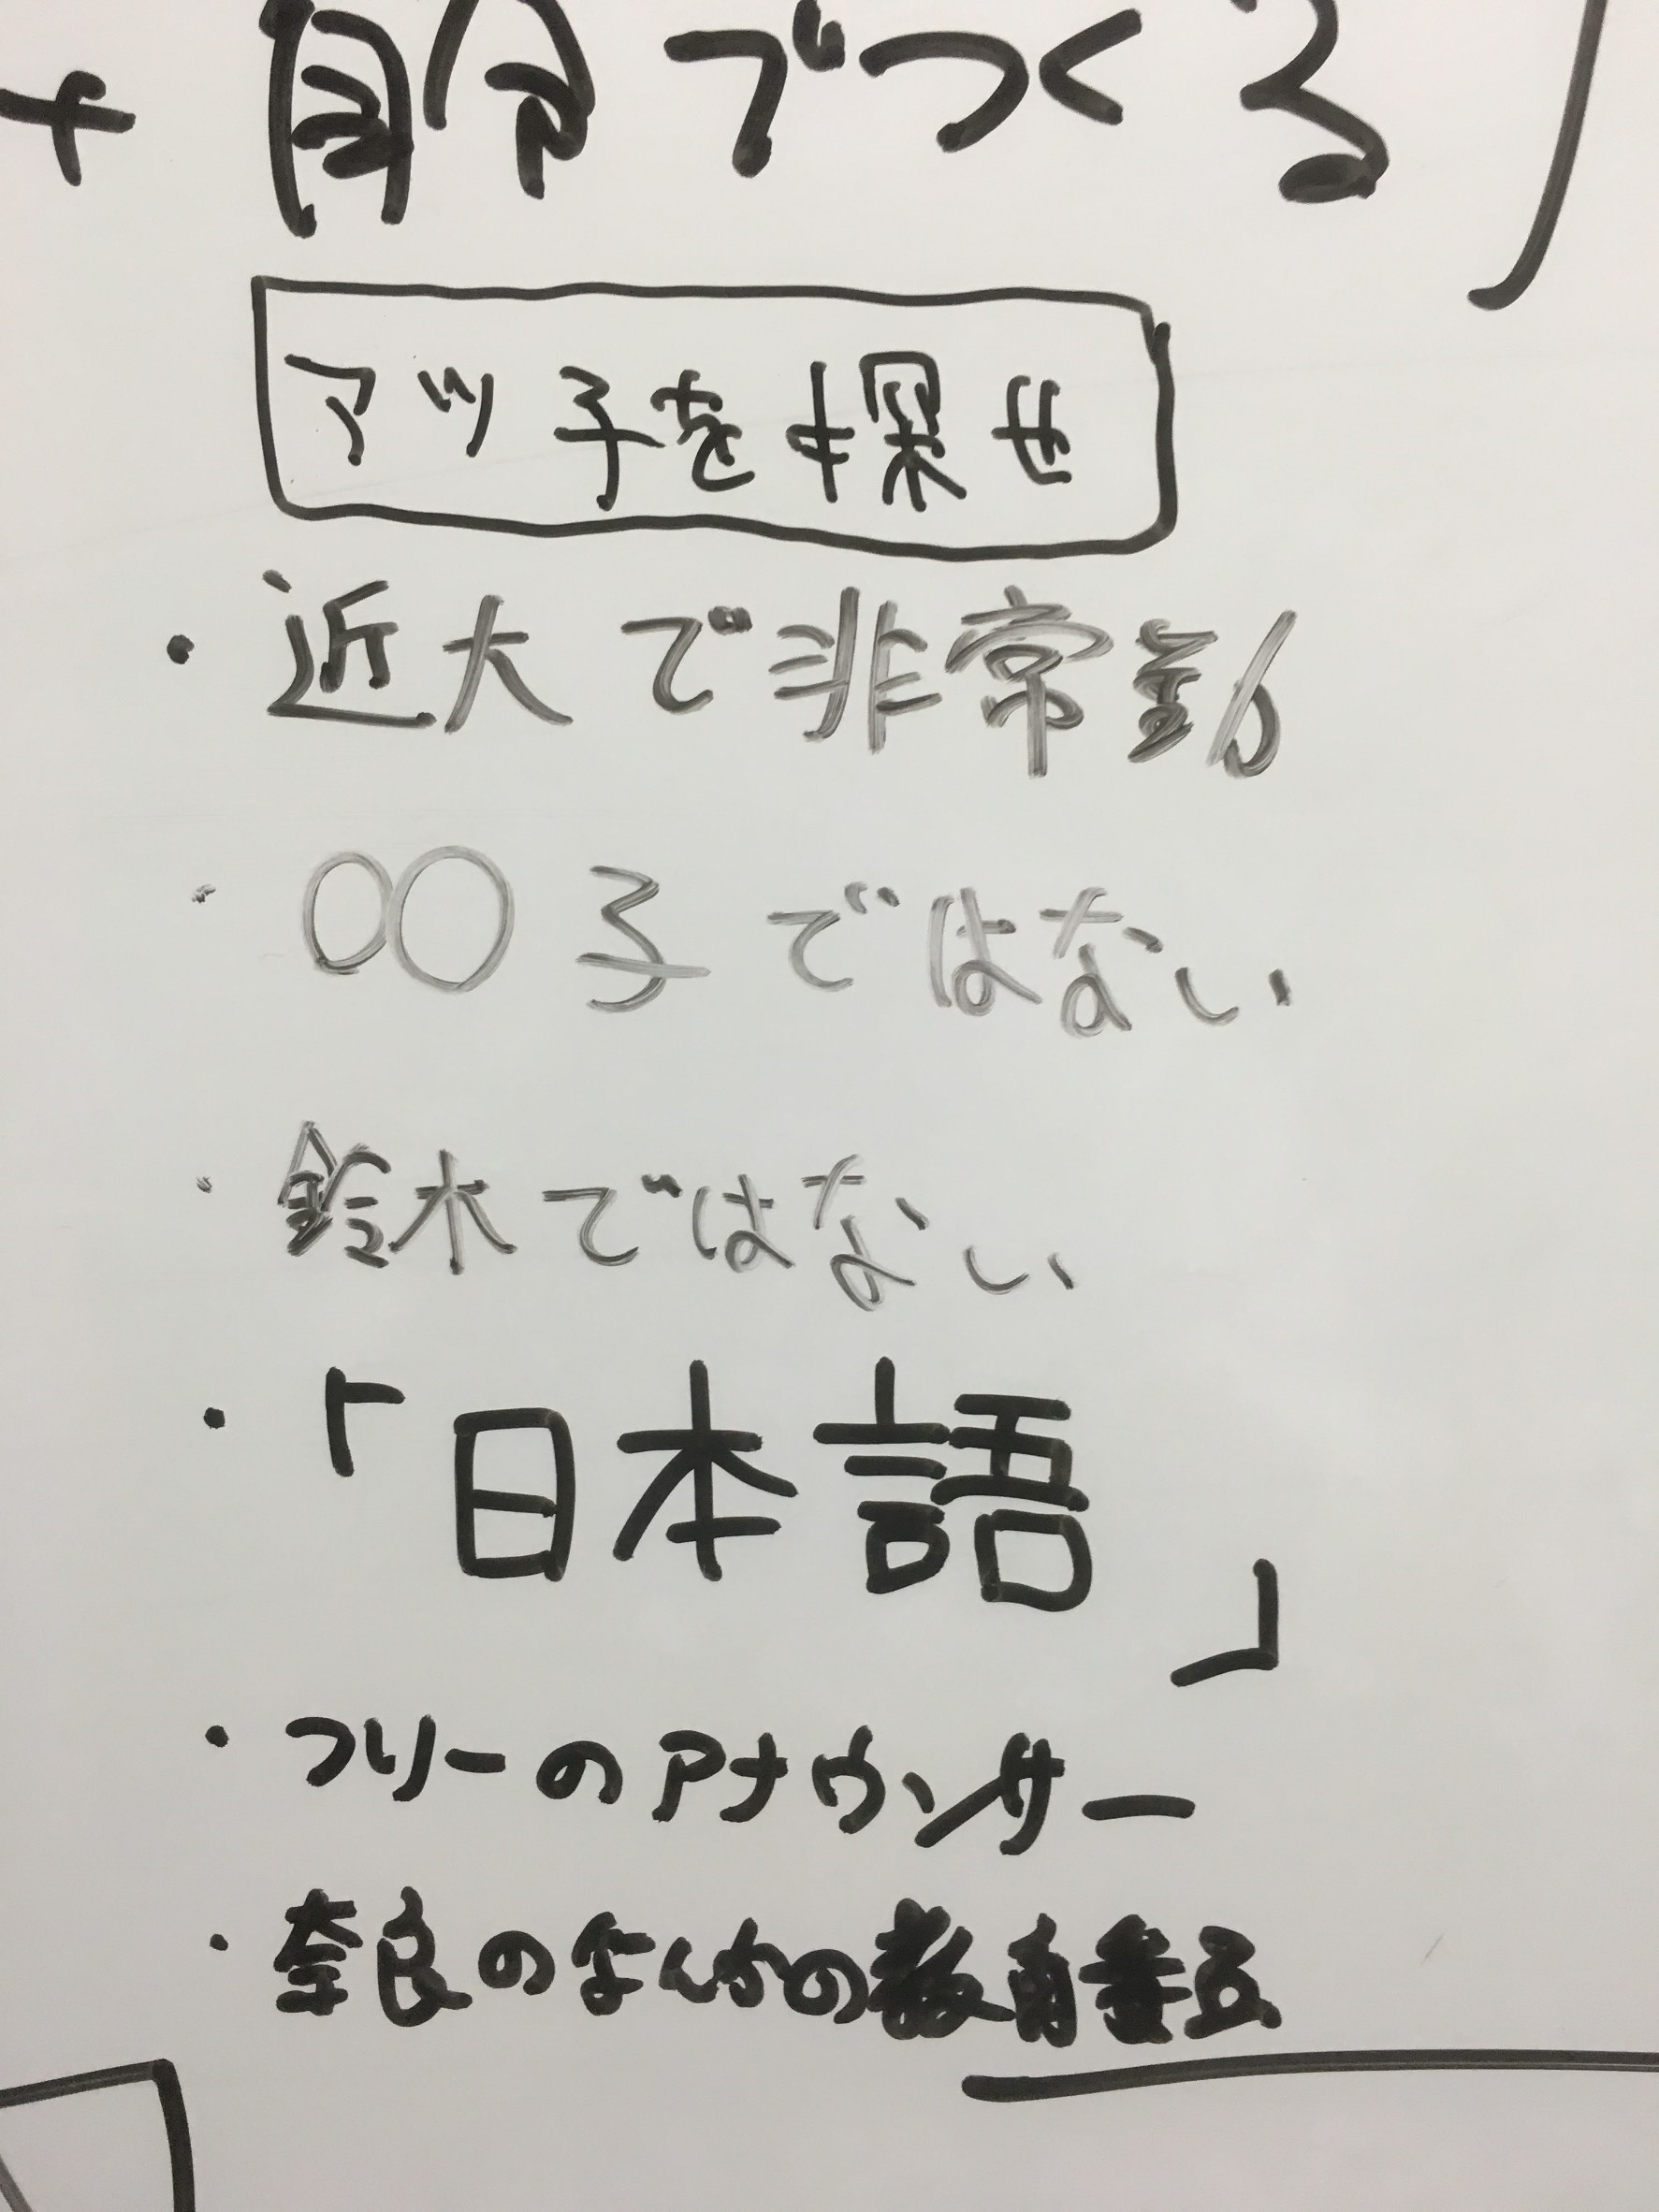 + 自分でつくる
アツ子を探せ
・近大で非常勤
・〇〇子ではない
・鈴木ではない
・「日本語」
・フリーのアナウンサー
・奈良のなんかの教育委